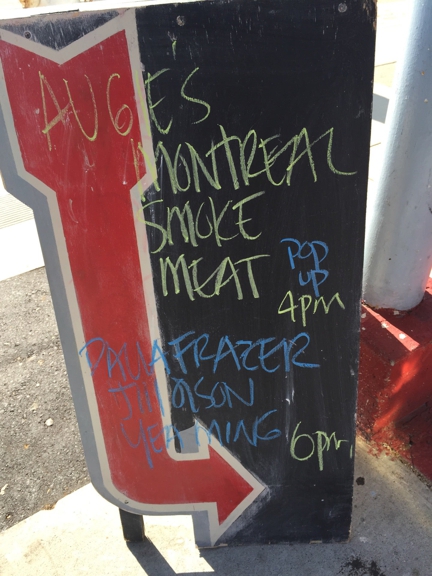 AUGIE'S
MONTREAL
SMOKE
MEAT
POP
UP
4pm
PAULA FRAZER
YEAMING
6pm